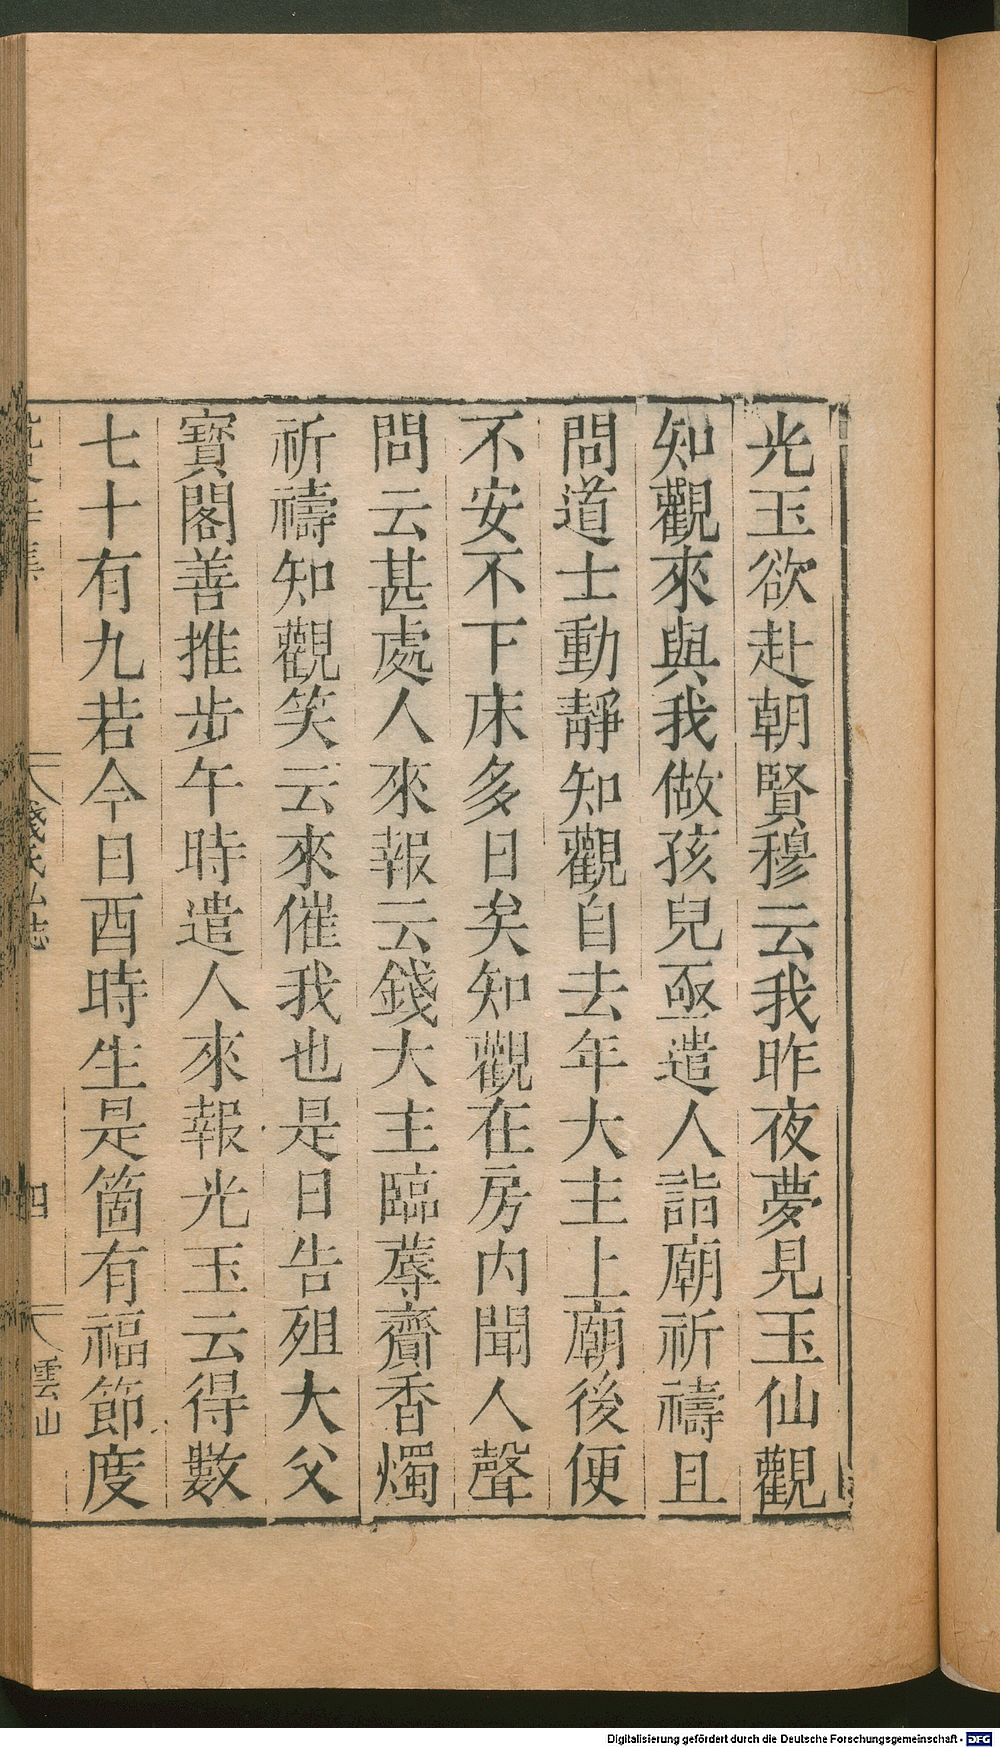 光玉欲赴朝賢穆云我昨夜夢見玉仙觀
知觀來與我做孩兒亟遣人詣廟祈禱且
問道士動靜知觀自去年大主上廟後便
不安不下床多日矣知觀在房内聞人聲
問云甚處人來報云錢大主臨蓐齎香燭
祈禱知觀笑云來催我也是日告殂大父
寶閣善推步午時遣人來報光玉云得數
七十有九若今日酉時生是箇有福節度
錢氏私誌
四
雲山
Digitalisierung gefördert durch die Deutsche Forschungsgemeinschaft - DFG